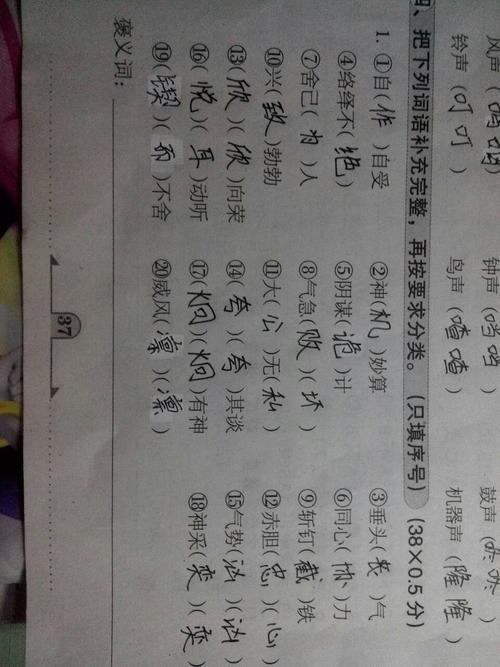 风声( )  钟声(  )  鼓声(咚咚)
铃声(叮叮)  鸟声(喳喳)  机器声(隆隆)
四、把下列词语补充完整，再按要求分类。(只填序号)(38×0.5分)
1. ①自(作)自受  ②神(机)妙算  ③垂头(丧)气
④络绎不(绝)  ⑤阴谋(诡)计  ⑥同心(协)力
⑦舍己(为)人  ⑧气急(败)(坏)  ⑨斩钉(截)铁
⑩兴(致)勃勃  ⑪大(公)无(私)  ⑫赤胆(忠)(心)
⑬(欣)(欣)向荣  ⑭(夸)(夸)其谈  ⑮气势(汹)(汹)
⑯(悦)(耳)动听  ⑰(炯)(炯)有神  ⑱神采(奕)(奕)
⑲(锲)(而)不舍  ⑳威风(凛)(凛)
褒义词：
37